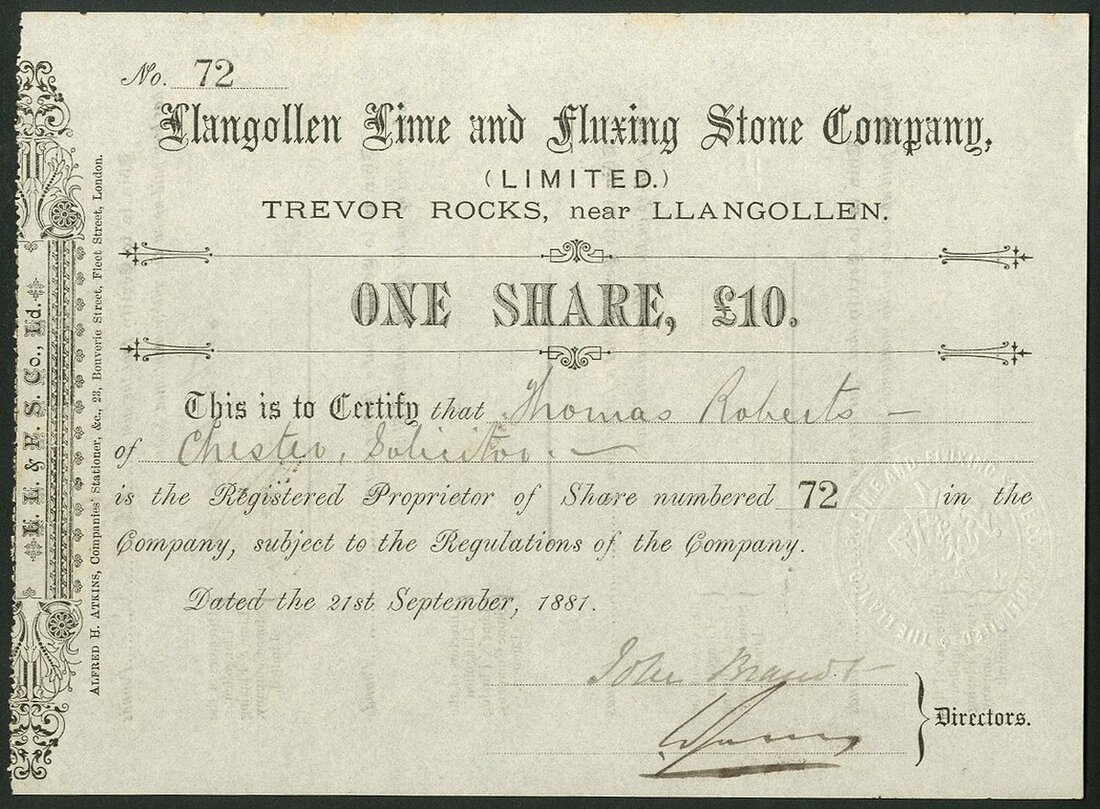 No. 72
Llangollen Lime and Fluxing Stone Company,
(LIMITED.)
TREVOR ROCKS, near LLANGOLLEN.
ONE SHARE, £10.
This is to Certify that Thomas Roberts —
of Chester, Solicitor. —
is the Registered Proprietor of Share numbered 72 in the
Company, subject to the Regulations of the Company.
Dated the 21st September, 1881.
John Brandt
Directors.
L. L. & F. S. Co., Ld.
ALFRED H. ATKINS, Companies' Stationer, &c., 23, Bouverie Street, Fleet Street, London.